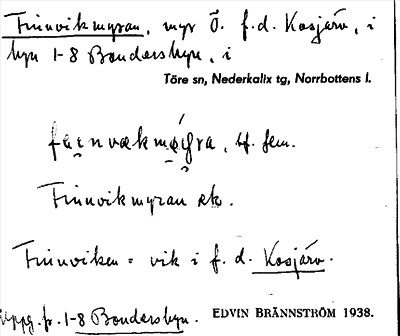 Finnvikmyran, myr Ö. f.d. Kosjärv, i
byn 1-8 Bondersbyn, i
Töre sn, Nederkalix tg, Norrbottens l.
bf. fem.
Finnvikmyran ek.
Finnviken = vik i f. d. Kosjärv.
Uppg. fr. 1-8 Bondersbyn. EDVIN BRÄNNSTRÖM 1938.